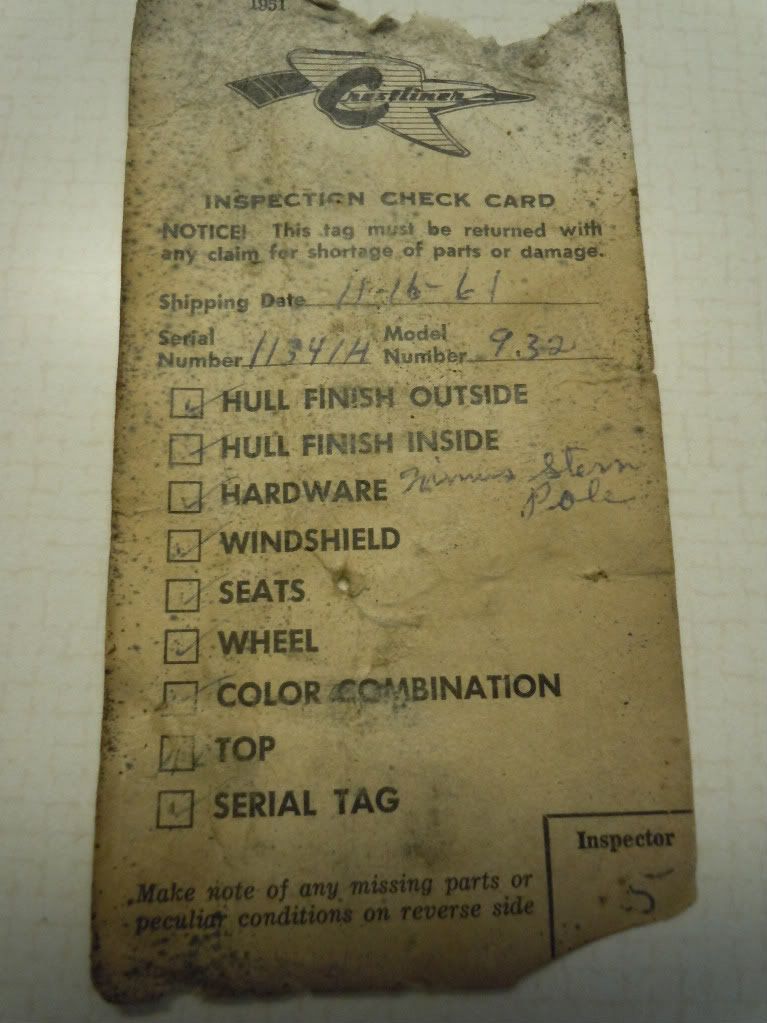 1951
Crestliner
INSPECTION CHECK CARD
NOTICE! This tag must be returned with
any claim for shortage of parts or damage.
Shipping Date 11-16-61
Serial Number 11341H Model Number 9.32
HULL FINISH OUTSIDE
HULL FINISH INSIDE
HARDWARE minus Stern
Pole
WINDSHIELD
SEATS
WHEEL
COLOR COMBINATION
TOP
SERIAL TAG
Inspector
5
Make note of any missing parts or
peculiar conditions on reverse side